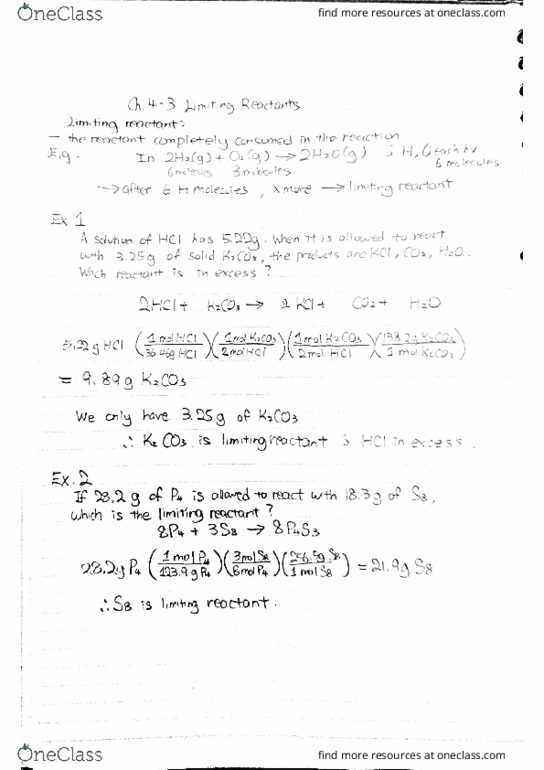 OneClass
find more resources at oneclass.com
Ch.4-3 Limiting Reactants
Limiting reactant:
— the reactant completely consumed in the reaction
E.g. In 2H₂(g) + O₂(g) → 2H₂O(g) ; H, O each hv
6 molecules
3 molecules
→ after 6 H molecules, X more → limiting reactant
Ex 1
A solution of HCl has 5.22g. When it is allowed to react
with 3.25g of solid K₂CO₃, the products are KCl, CO₂, H₂O.
Which reactant is in excess?
2HCl + K₂CO₃ → 2 KCl + CO₂ + H₂O
5.22g HCl (1 mol HCl / 36.46g HCl)(1 mol K₂CO₃ / 2 mol HCl)(1 mol K₂CO₃ / 2 mol HCl)(138.2g K₂CO₃ / 1 mol K₂CO₃)
= 9.89g K₂CO₃
We only have 3.25g of K₂CO₃
∴ K₂CO₃ is limiting reactant ; HCl in excess.
Ex. 2
If 28.2g of P₄ is allowed to react with 18.3g of S₈,
which is the limiting reactant?
8P₄ + 3S₈ → 8P₄S₃
28.2g P₄ (1 mol P₄ / 123.9g P₄)(3 mol S₈ / 8 mol P₄)(256.5g S₈ / 1 mol S₈) = 21.9g S₈
∴ S₈ is limiting reactant.
OneClass
find more resources at oneclass.com